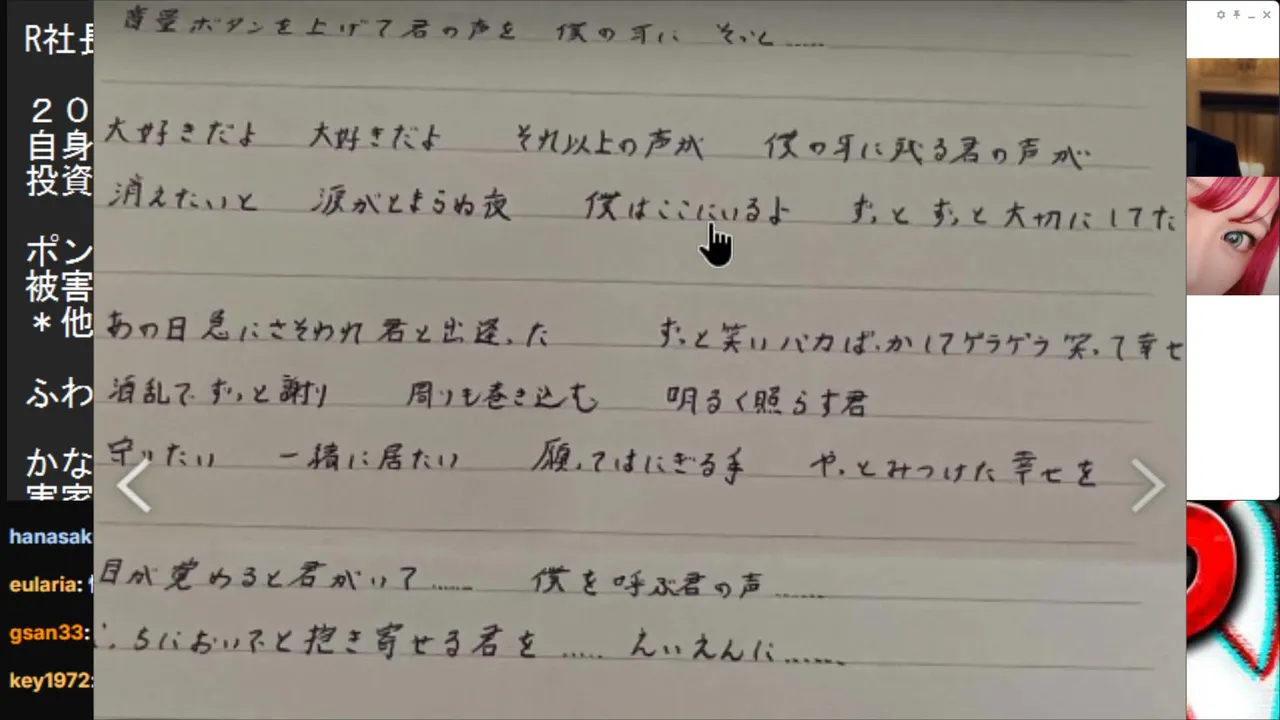 音量ボタンを上げて君の声を 僕の耳に そっと……
大好きだよ 大好きだよ それ以上の声が 僕の耳に残る君の声が
消えたいと 涙がとまらぬ夜 僕はここにいるよ ずっと ずっと大切にしてた
あの日 急にさそわれ 君と出逢った ずっと笑いバカばっかしてゲラゲラ笑って幸せ
酒乱で ずっと謝り 周りも巻き込む 明るく照らす君
守りたい 一緒に居たい 願ってはにぎる手 やっとみつけた幸せを
目が覚めると君がいて…… 僕を呼ぶ君の声……
こっちにおいでと抱き寄せる君を …… えいえんに……
R社長
２０
自身
投資
ポン
被害
＊他
ふわ
かな
実家
hanasak
eularia:
gsan33:
key1972: